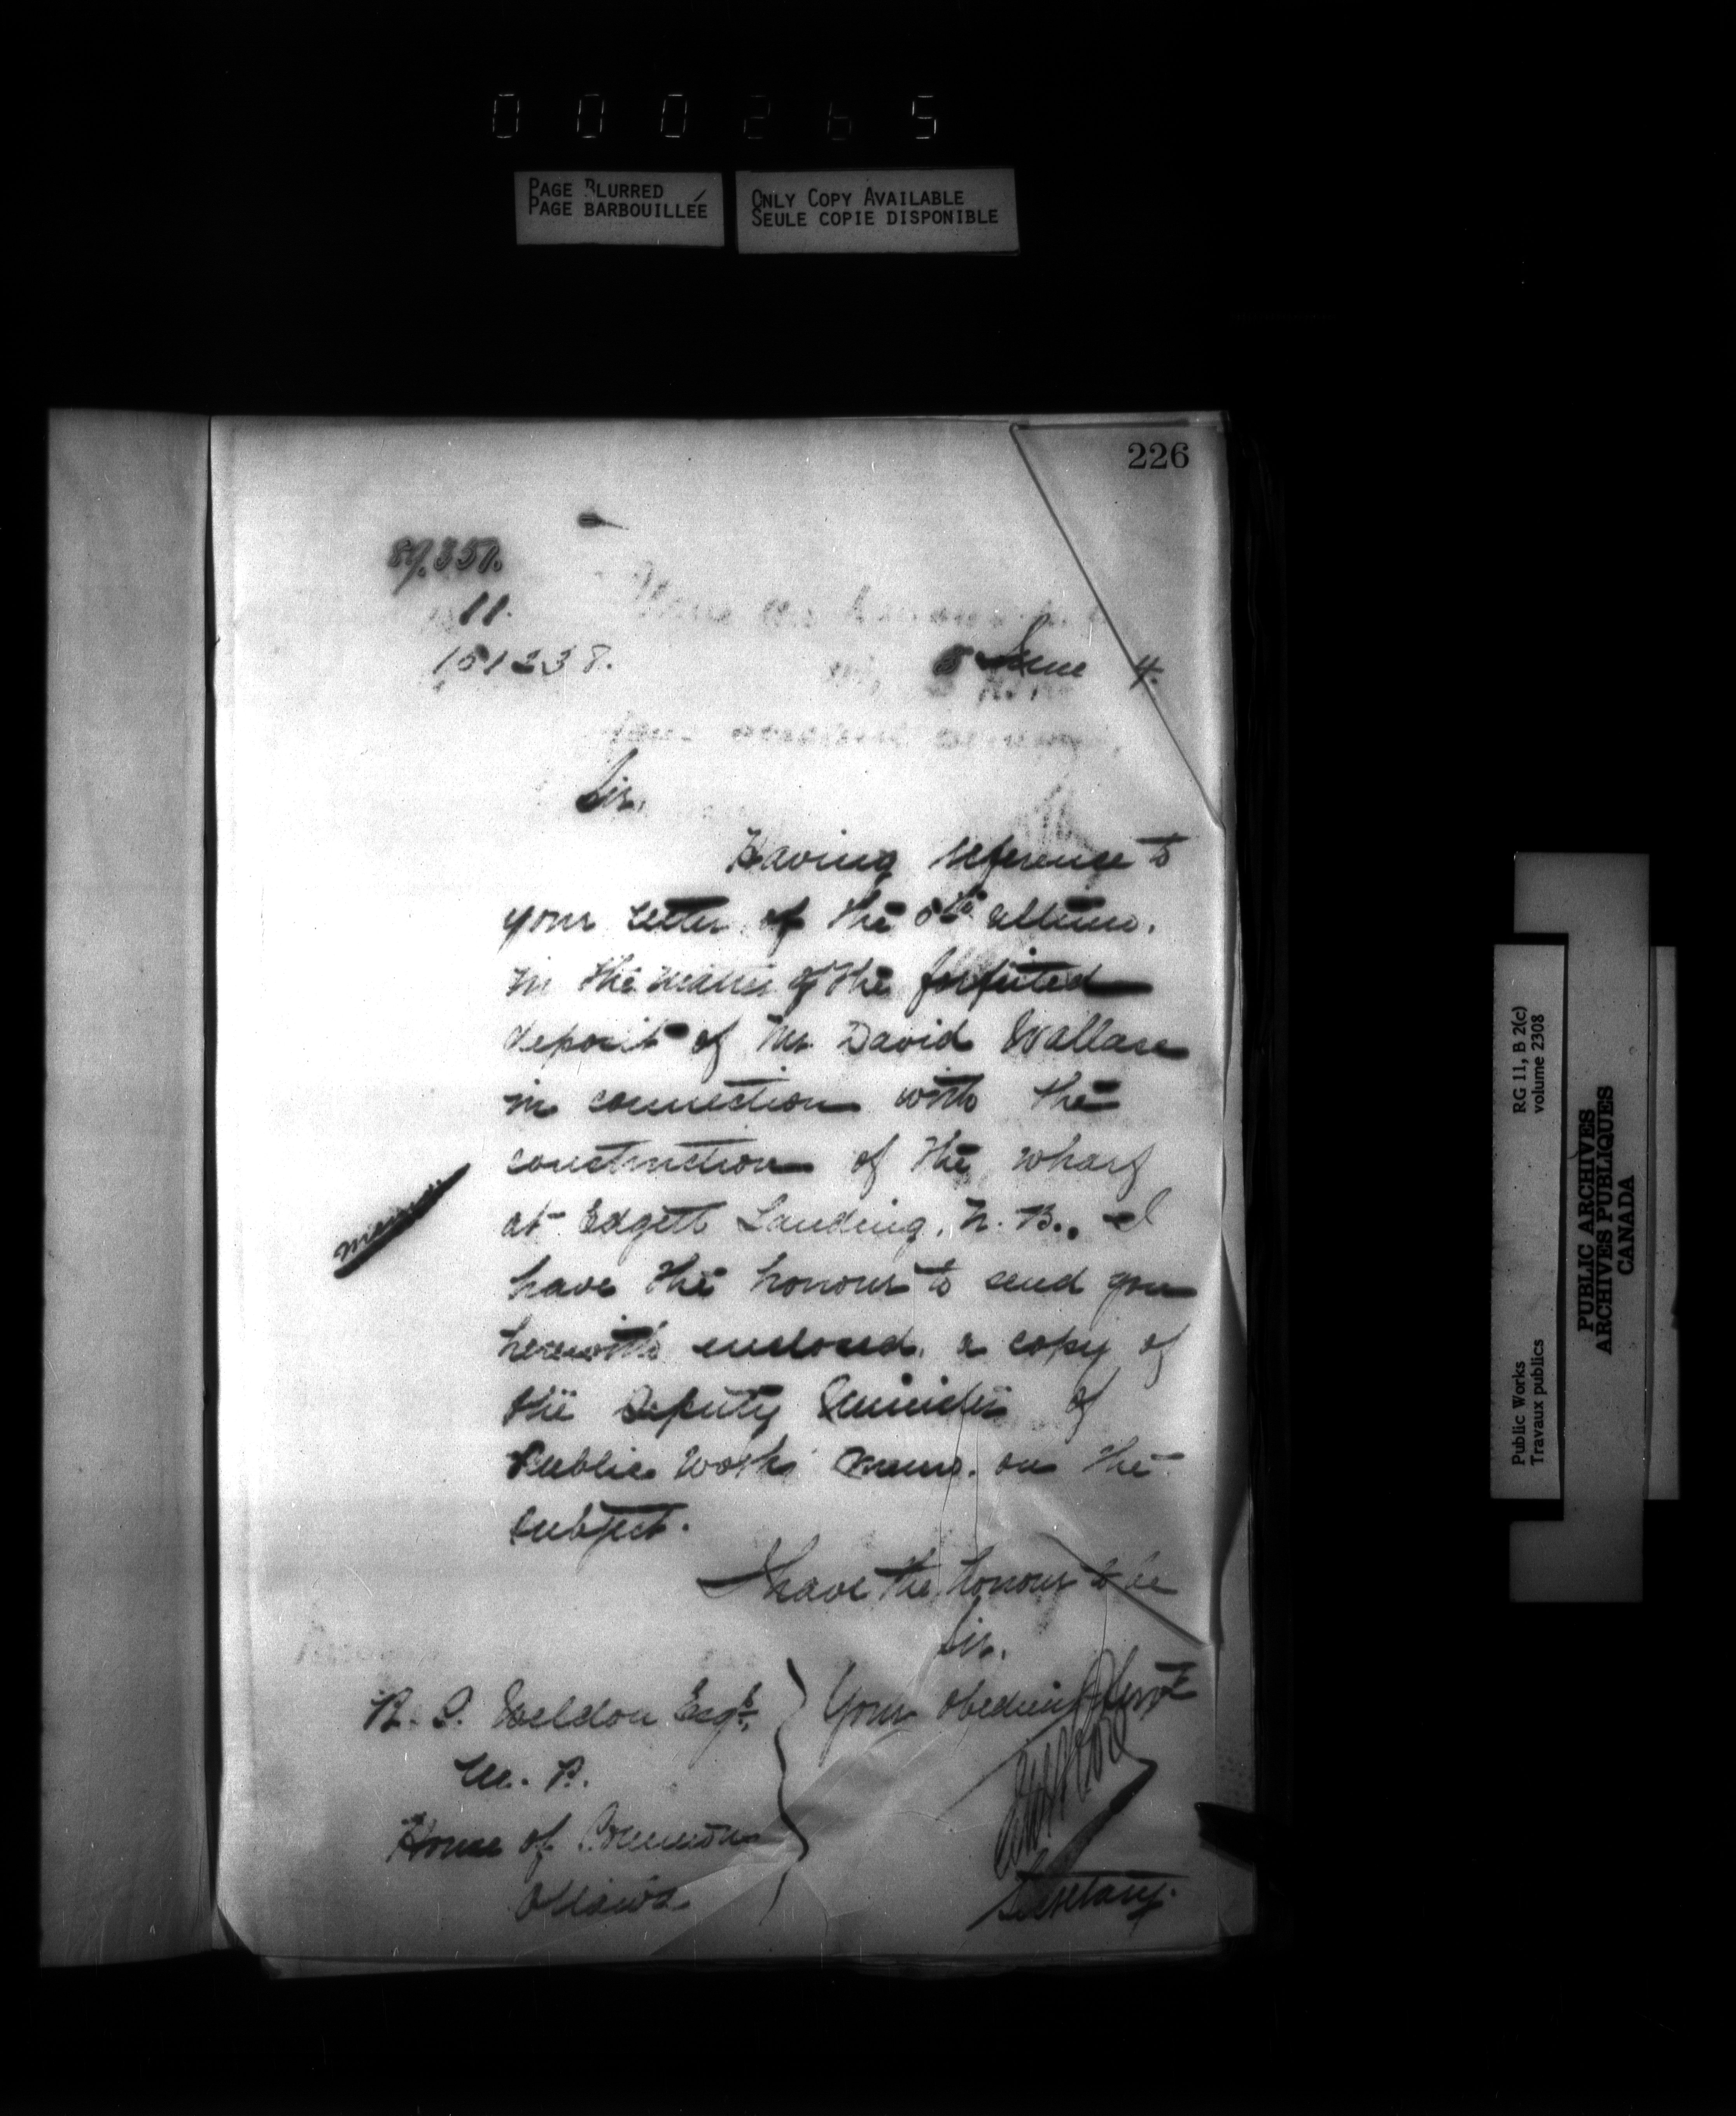 000265
PAGE BLURRED
PAGE BARBOUILLÉE
ONLY COPY AVAILABLE
SEULE COPIE DISPONIBLE
226
11.
151238.
5 June 4.
Sir,
Having reference to
your letter of the 5th ultimo.
in the matter of the forfeited
deposit of Mr David Wallace
in connection with the
construction of the wharf
at Edgett Landing, N. B., I
have the honour to send you
herewith enclosed, a copy of
the Deputy Minister of
Public Works memo. on the
subject.
I have the honour to be
Sir,
Your obedient Servt
Secretary.
R. S. Weldon Esqr.
M. P.
House of Commons
Ottawa
Public Works
Travaux publics
RG 11, B 2(c)
volume 2308
PUBLIC ARCHIVES
ARCHIVES PUBLIQUES
CANADA